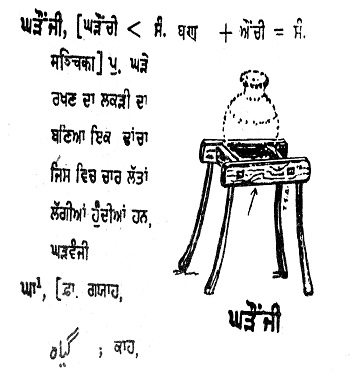 ਘੜੌਂਜੀ, [ਘੜੌਂਚੀ < ਸੰ. + ਔਂਚੀ = ਸੰ.
ਸਞ੍ਚਿਕਾ] ਪੁ. ਘੜੇ
ਰਖਣ ਦਾ ਲਕੜੀ ਦਾ
ਬਣਿਆ ਇਕ ਢਾਂਚਾ
ਜਿਸ ਵਿਚ ਚਾਰ ਲੱਤਾਂ
ਲੱਗੀਆਂ ਹੁੰਦੀਆਂ ਹਨ,
ਘੜਵੰਜੀ
ਘਾ¹, [ਫ਼ਾ. ਗਯਾਹ,
; ਕਾਹ,
ਘੜੌਂਜੀ